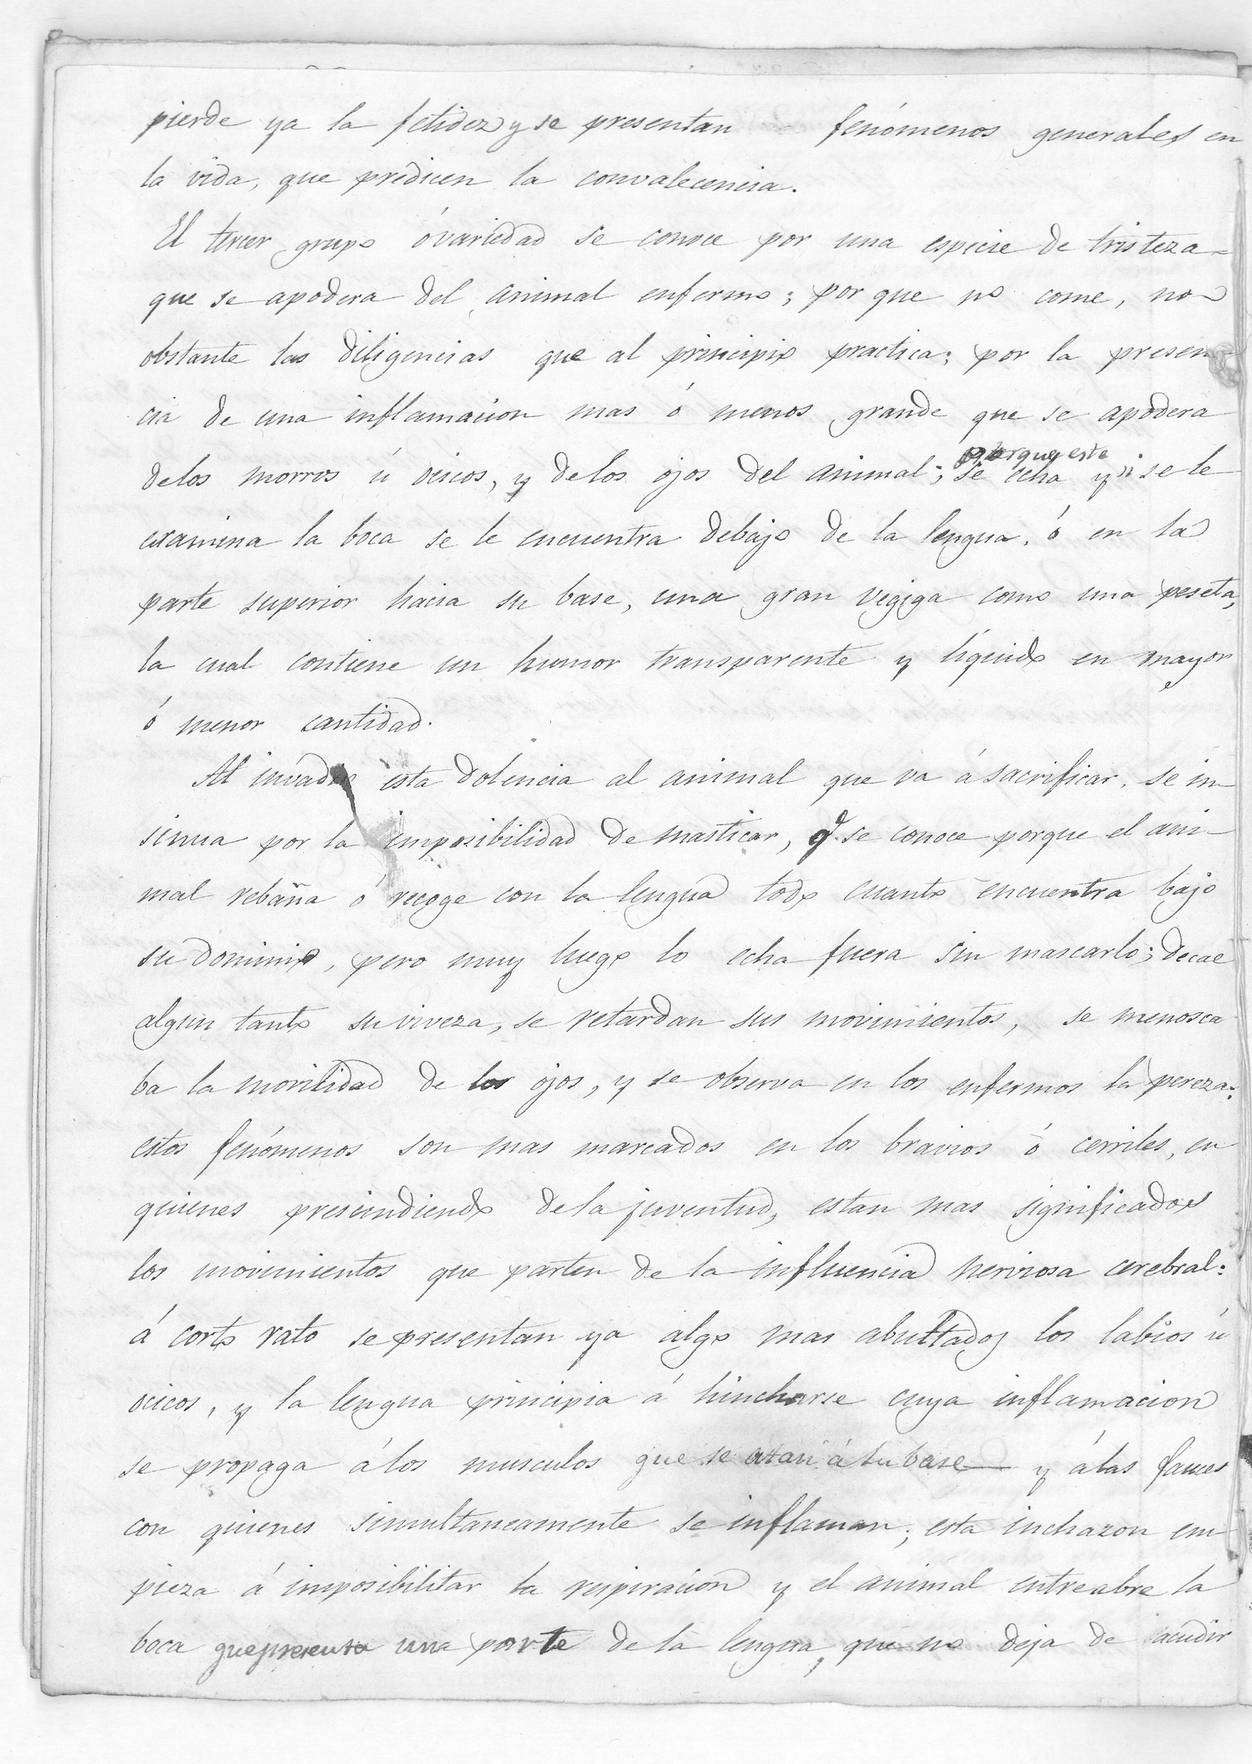 pierde ya la fetidez y se presentan fenómenos generales en
la vida, que predicen la convalecencia.
El tercer grupo ó variedad se conoce por una especie de tristeza
que se apodera del animal enfermo; por que no come, no
obstante las diligencias que al principio practica; por la presen-
cia de una inflamacion mas ó menos grande que se apodera
delos morros ú ocicos, y delos ojos del animal; porque este
se echa y si se le
examina la boca se le encuentra debajo de la lengua, ó en la
parte superior hacia su base, una gran vegiga como una peseta,
la cual contiene un humor transparente y líquido en mayor
ó menor cantidad.
Al invadir esta dolencia al animal que va á sacrificar, se in-
sinua por la imposibilidad de masticar, q se conoce porque el ani-
mal rebaña ó recoge con la lengua todo cuanto encuentra bajo
su dominio, pero muy luego lo echa fuera sin mascarlo; decae
algun tanto su viveza, se retardan sus movimientos, se menosca
ba la movilidad de los ojos, y se observa en los enfermos la pereza:
estos fenómenos son mas marcados en los bravios ó cerriles, en
quienes presindiendo dela juventud, estan mas significados
los movimientos que parten de la influencia nerviosa cerebral:
á corto rato se presentan ya algo mas abultados los labios ú
ocicos, y la lengua principia á hincharse cuya inflamacion
se propaga á los musculos que se atan á su base y á las fauces
con quienes simultaneamente se inflaman; esta inchazon em
pieza á imposibilitar la respiracion y el animal entreabre la
boca que presenta una parte de la lengua, que no deja de sacudir